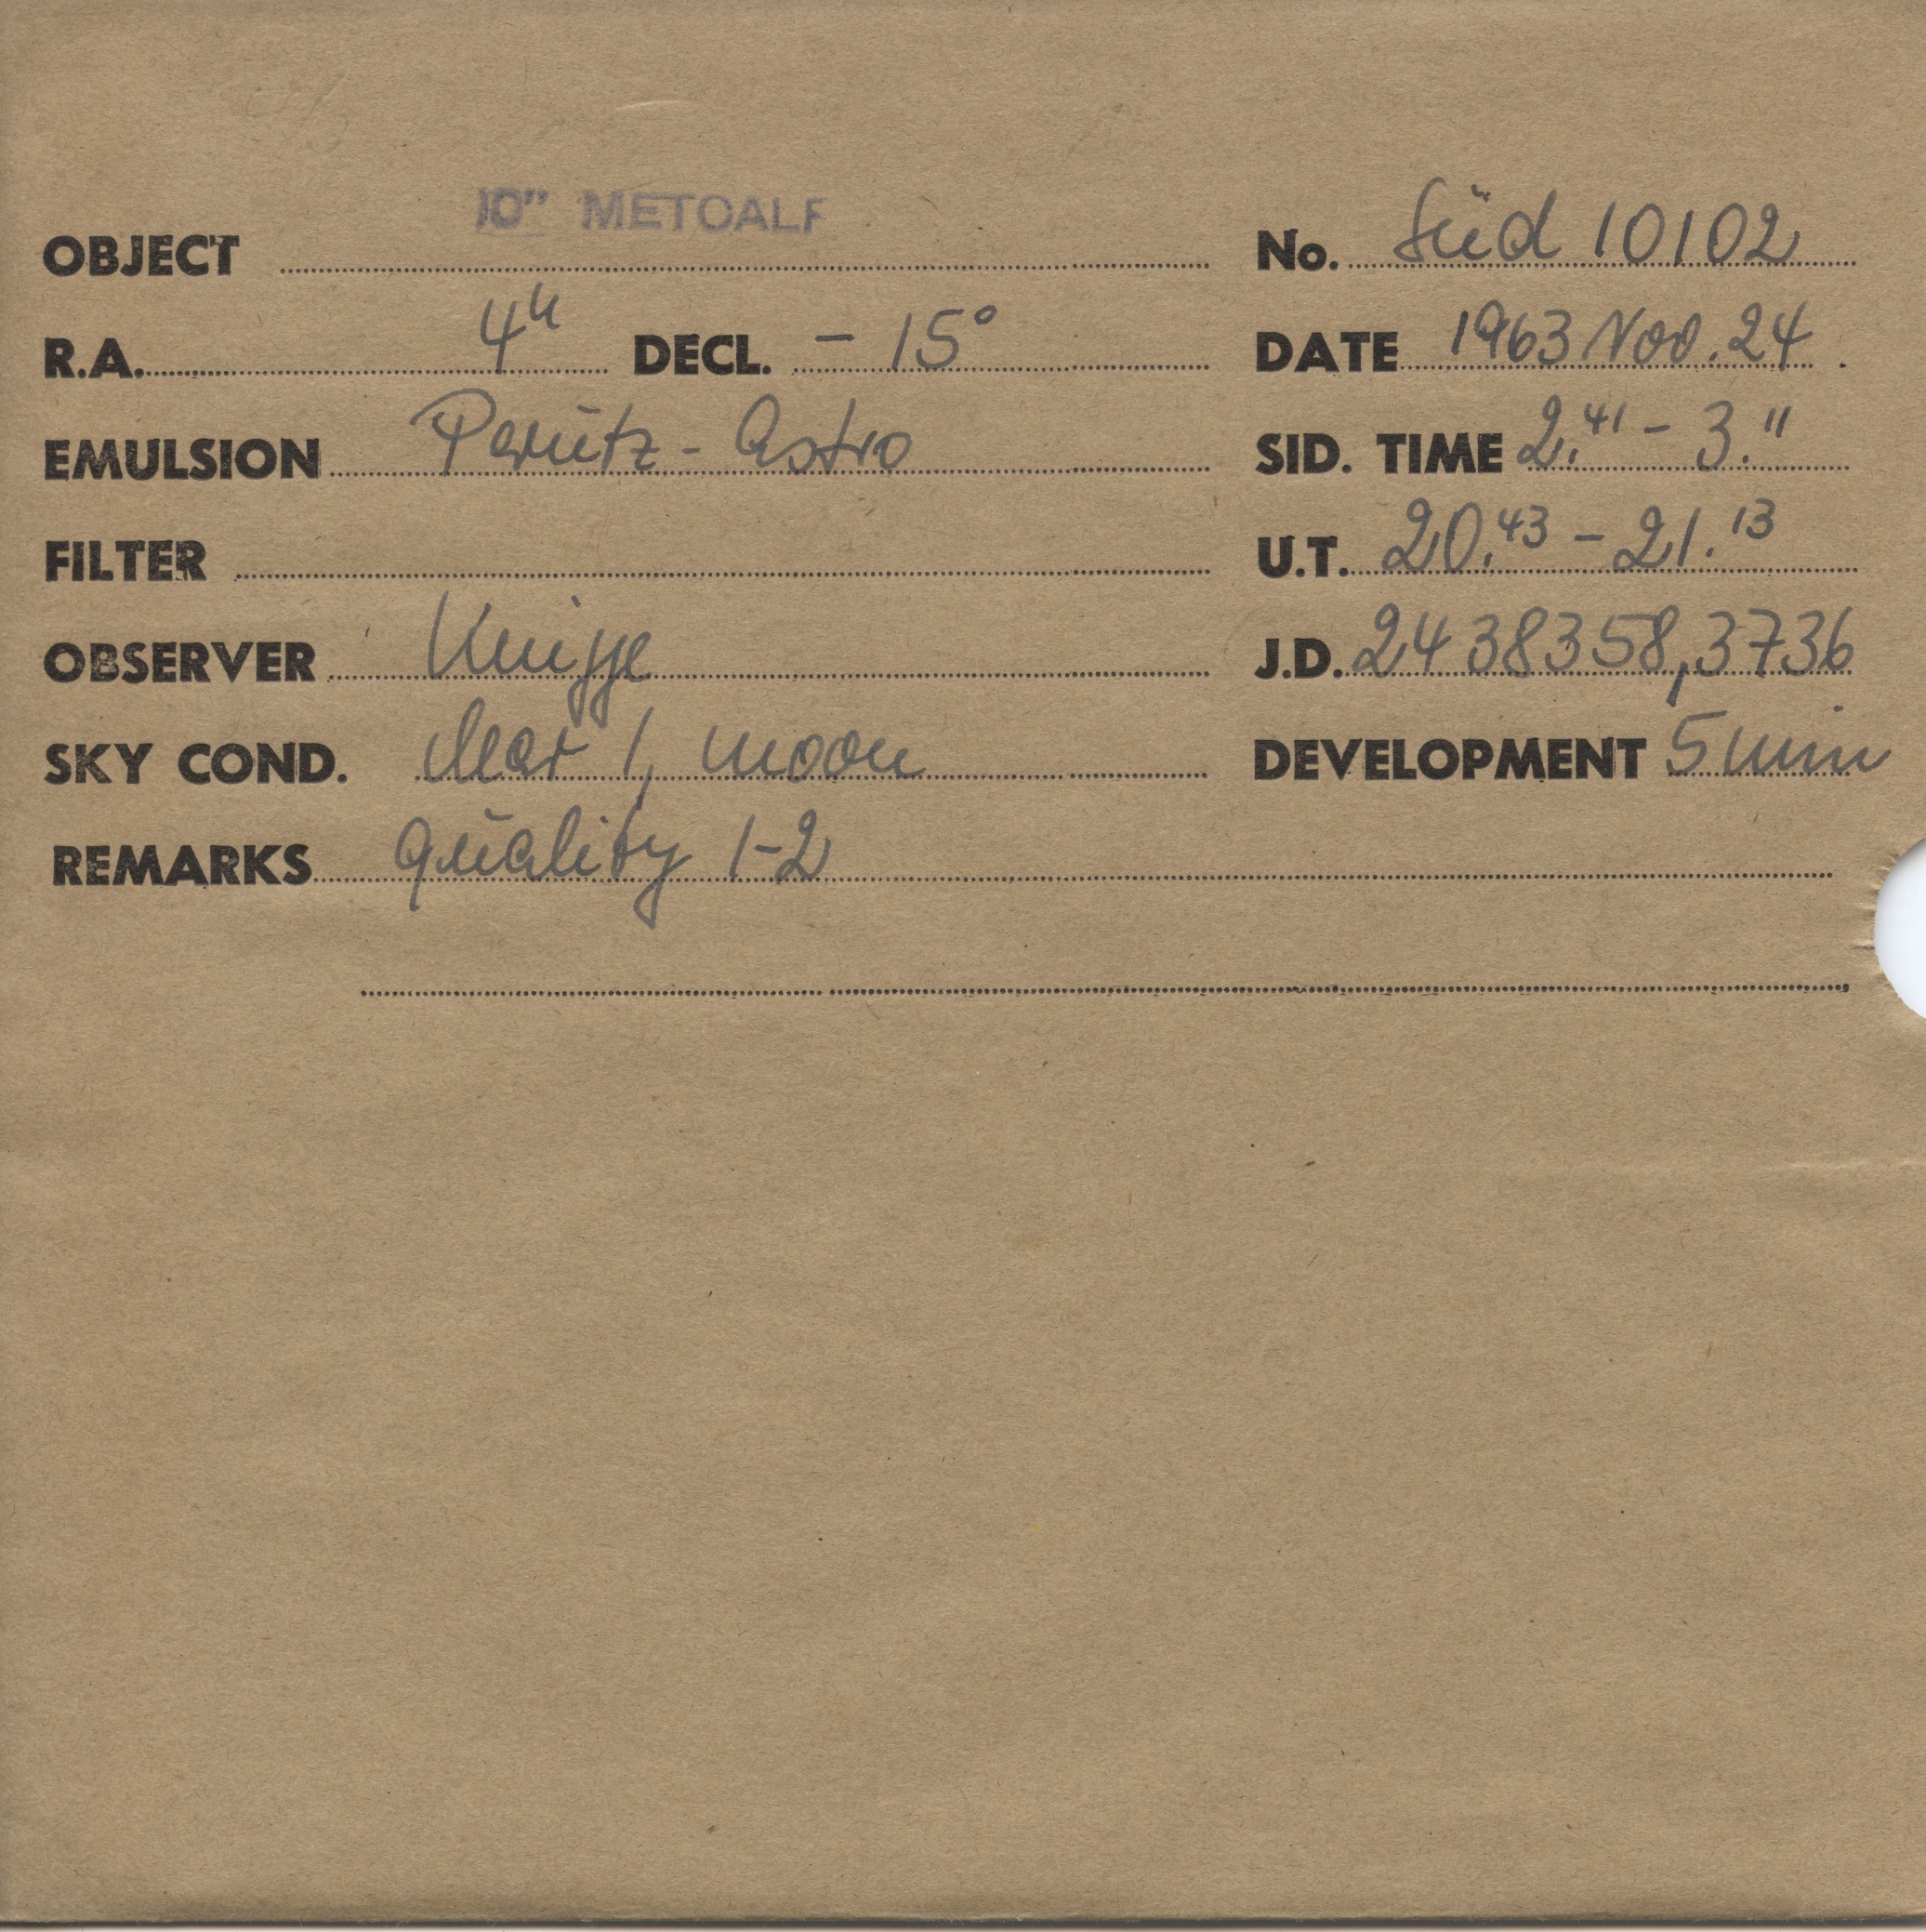 10" METCALF
OBJECT No. Süd 10102
R.A. 4h DECL. - 15° DATE 1963 Nov. 24.
EMULSION Perutz - Astro SID. TIME 2.41 - 3.11
FILTER U.T. 20.43 - 21.13
OBSERVER Knigge J.D. 2438358,3736
SKY COND. clear 1, moon DEVELOPMENT 5 min
REMARKS quality 1-2